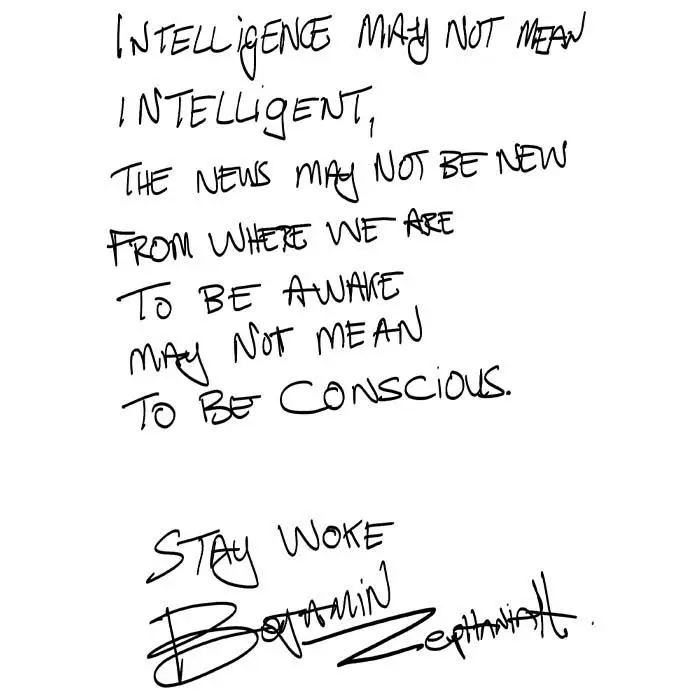 INTELLIGENCE MAY NOT MEAN
INTELLIGENT,
THE NEWS MAY NOT BE NEW
FROM WHERE WE ARE
TO BE AWAKE
MAY NOT MEAN
TO BE CONSCIOUS.
STAY WOKE
BENJAMIN ZEPHANIAH.